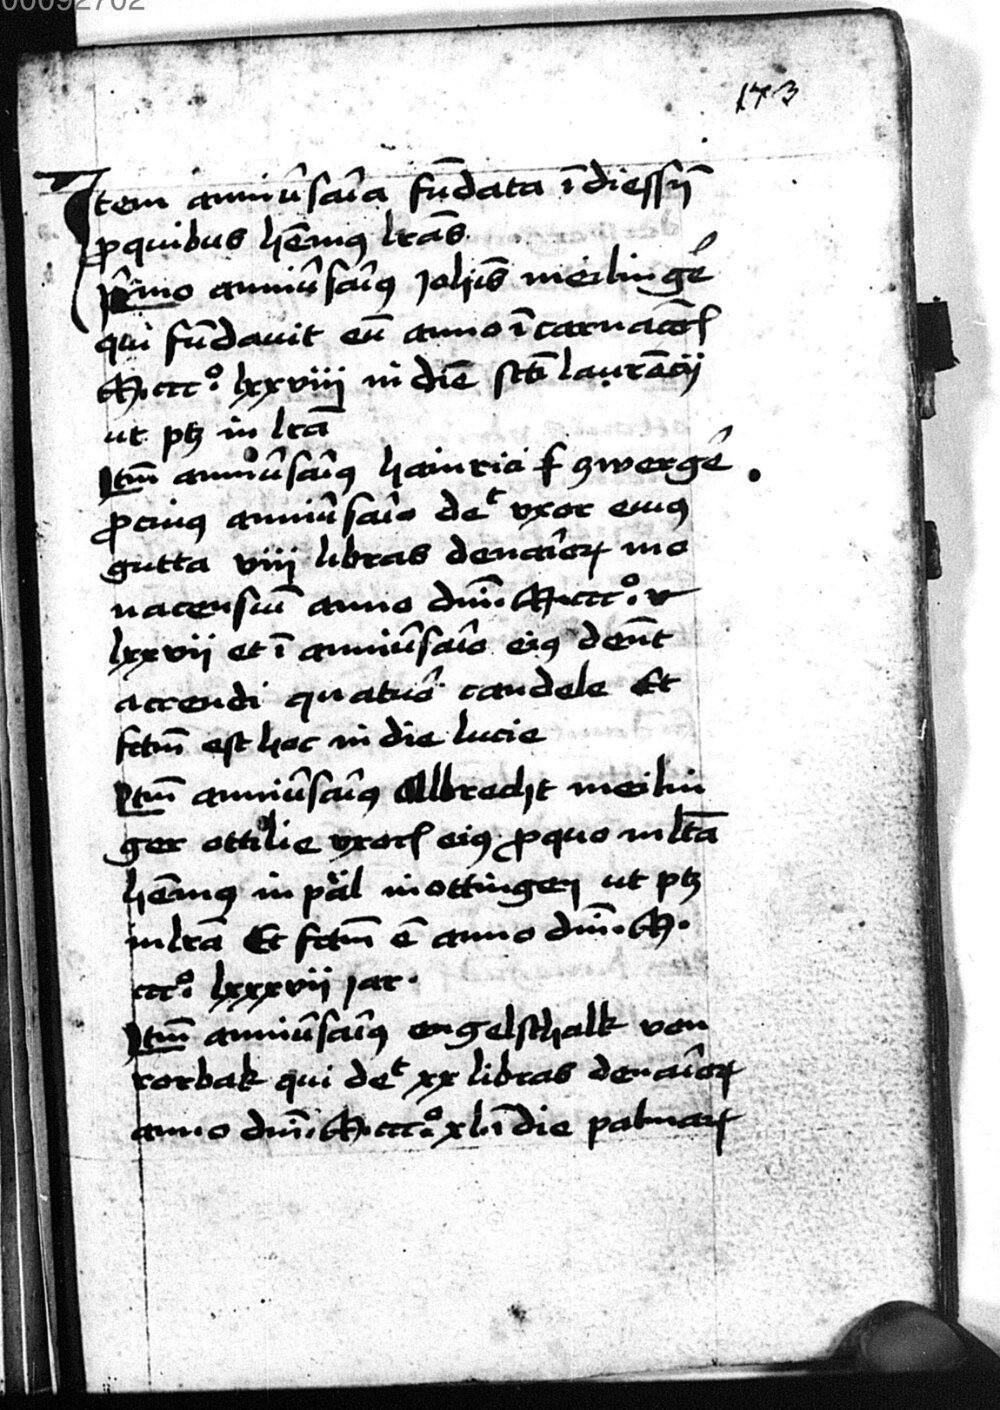 00092702
173
Item anniũsaͥia fũdata ĩ diessñ
ꝓ quibus hẽmꝰ lrãs
pͥmo anniũsaͥiꝰ Johis̃ meilingẽ
qui fũdavit eũ anno ĩcarnacõis
M.ccc°. lxxviij in diẽ sctĩ laurẽcij
ut ptꝫ in lrã
Itm̃ anniũsaͥiꝰ hainrici f zwergẽ
ꝓ cuiꝰ anniũsaͥio det vxor eiuꝰ
gutta viij libras denaͥioꝝ mo
nacensiũ anno dnĩ. M.ccc°.
lxxvij et ĩ anniũsaͥio eiꝰ deñt
accendi quatuõ candele Et
fctm̃ est hoc in die lucie
Itm̃ anniũsaͥiꝰ Albrecht meilin
ger ottilie vxoris eiꝰ ꝓ quo in ltã
hẽmꝰ in päl in ottingen ut ptꝫ
in lrã Et fctm̃ ẽ anno dnĩ. M.
ccc°. lxxxvij jar.
Itm̃ anniũsaͥiꝰ engelschalk von
rorbak qui det xx libras denaͥioꝝ
anno dnĩ. M.ccc°. xl. ĩ die palmaꝝ